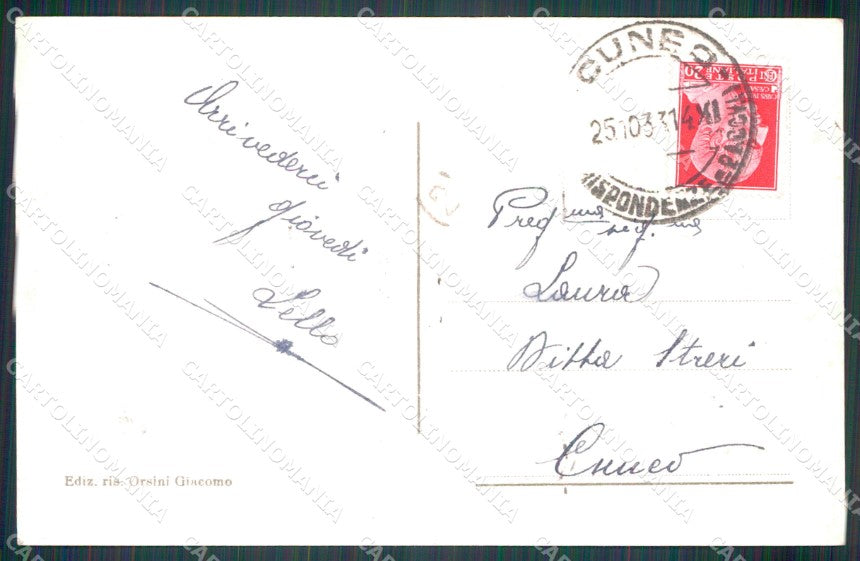 Arrivederci
giovedì
Lello
Ediz. ris. Orsini Giacomo
CUNEO
25 10 33 14 XI
Preg ma sig. na
Laura
Ditta Streri
Cuneo
POSTE ITALIANE
20
CARTOLINOMANIA